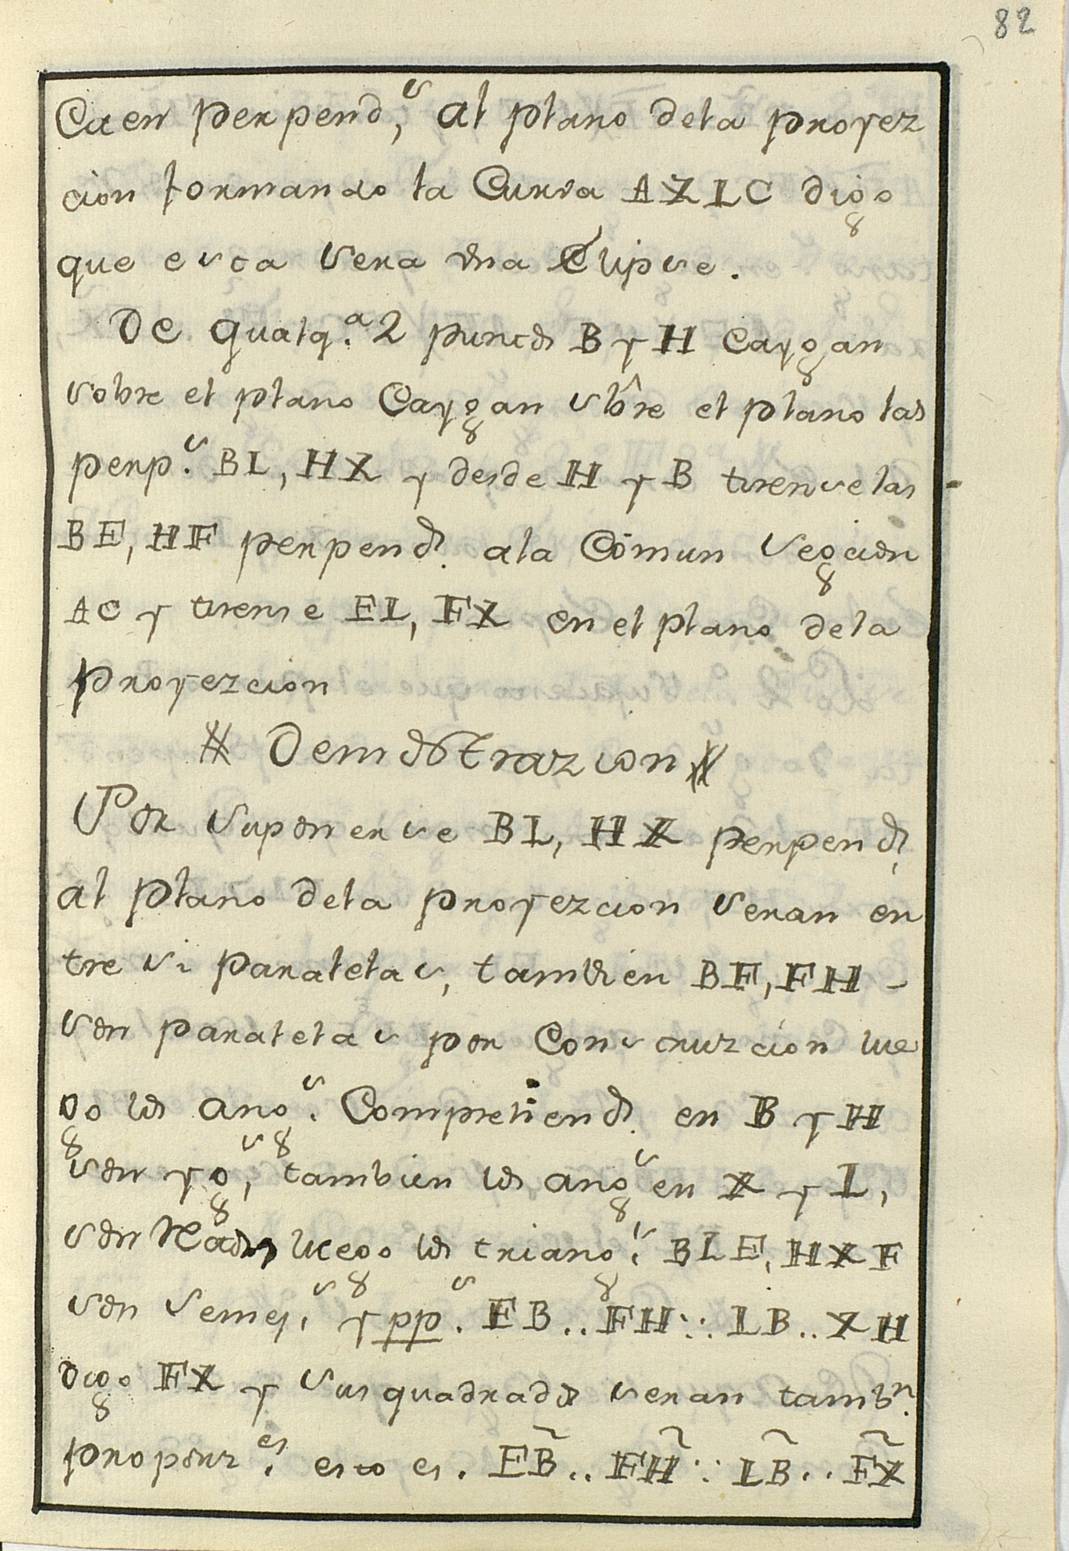 82
Caen perpend.s al plano dela proyez
cion formando la Curva AXLC digo
que esta sera vna Elipse.
De qualq.a 2 puntos B y H Caygan
sobre el plano Caygan sbre el plano las
perp.s BL, HX y desde H y B tirense las
BE, HF perpend.s ala Comun Seccion
AC y tirense EL, FX en el plano dela
proyezcion
Demostrazion
Por suponerse BL, HX perpend.s
al plano dela proyezcion seran en
tre si paralelas, tambien BE, FH -
son paralelas por Construzcion lue
go los ang.s Comprehendos en B y H
son yg.s, tambien los ang.s en X y L,
son luego los triang.s BLE, HXF
son semej.s y pp.s EB .. FH :: LB .. XH
digo FX y sus quadrados seran tambn.
proporz.es esto es. EB .. FH :: LB .. FX